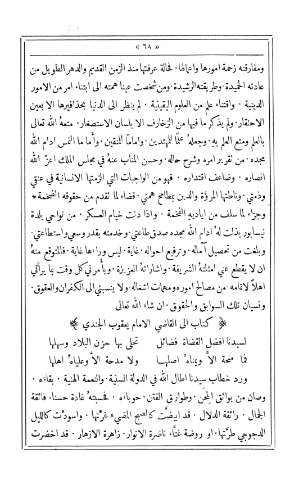 « ٦٨ »
ومفارقته زحمة امورها واعمالها ٭ فحالة عرفتها منذ الزمن القديم والدهر الطويل من
عادته الحميدة ٭ وطريقته الرشيدة ٭ ومن شخصت عيناه همته الى ابتناء من الامور
الدينية ٭ واقتناء علم من العلوم اليقينية ٭ لم ينظر الى الدنيا بحذافيرها الا بعين
الاحتقار ٭ ولم يذكر ما فيها من الزخارف الا بلسان الاستصغار ٭ متعه الله تعالى
بالعلم ومتع العلم به ٭ وجعله علما للمهتدين ٭ واماما للمتقين ٭ وأما ما التمس ادام الله
مجده ٭ من تقرير امره وشرح حاله ٭ وحسن المناب عنه في مجلس الملك اعز الله
انصاره ٭ وضاعف اقتداره ٭ فهو من الواجبات التي الزمتها الانسانية في عنقي
وذمتي ٭ وناطتها المروة والدين بمطامح همتي ٭ قضاء لما تقدم من حقوقه الضخمة ٭
وجزاء لما سلف من اياديه الفخمة ٭ واذا دنت خيام العسكر ٭ من نواحي بلدة
نيسابور بذلت له ادام الله مجده صدق طاعتي ٭ وخدمته بقدر وسعي واستطاعتي ٭
وبلغت من تحصيل آماله ٭ وترفيع احواله ٭ غاية ٭ ليس وراءها غاية ٭ فالمتوقع منه
ان لا يقطع عني امثلته الشريفة ٭ واشاراته العزيزة ٭ ويأمرني كل وقت بما يراني
اهلا لاتمامه من مصالح اموره ومهمات اشغاله ٭ ولا ينسبني الى الكفران والعقوق ٭
ونسيان تلك السوابق والحقوق ٭ ان شاء الله تعالى
﴿ كتاب الى القاضي الامام يعقوب الجندي ﴾
لسيدنا افضل القضاة فضائل ٭ تحلى بها حزن البلاد وسهلها
فما مدحة الا وينماه اصلها ٭ ولا مدحة الا وعلياه اهلها
ورد خطاب سيدنا اطال الله في الدولة السنية ٭ والنعمة الهنية ٭ بقاءه ٭
وصان من بوائق المحن ٭ وطوارق الفتن ٭ حوباءه ٭ فحسبته غادة حسناء فائقة
الجمال ٭ رائقة الدلال ٭ قد ابيضت كالصبح المضيء غرتها ٭ واسودت كالليل
الدجوجي طرتها ٭ او روضة غناء ناضرة الانوار ٭ زاهرة الازهار ٭ قد اخضرت